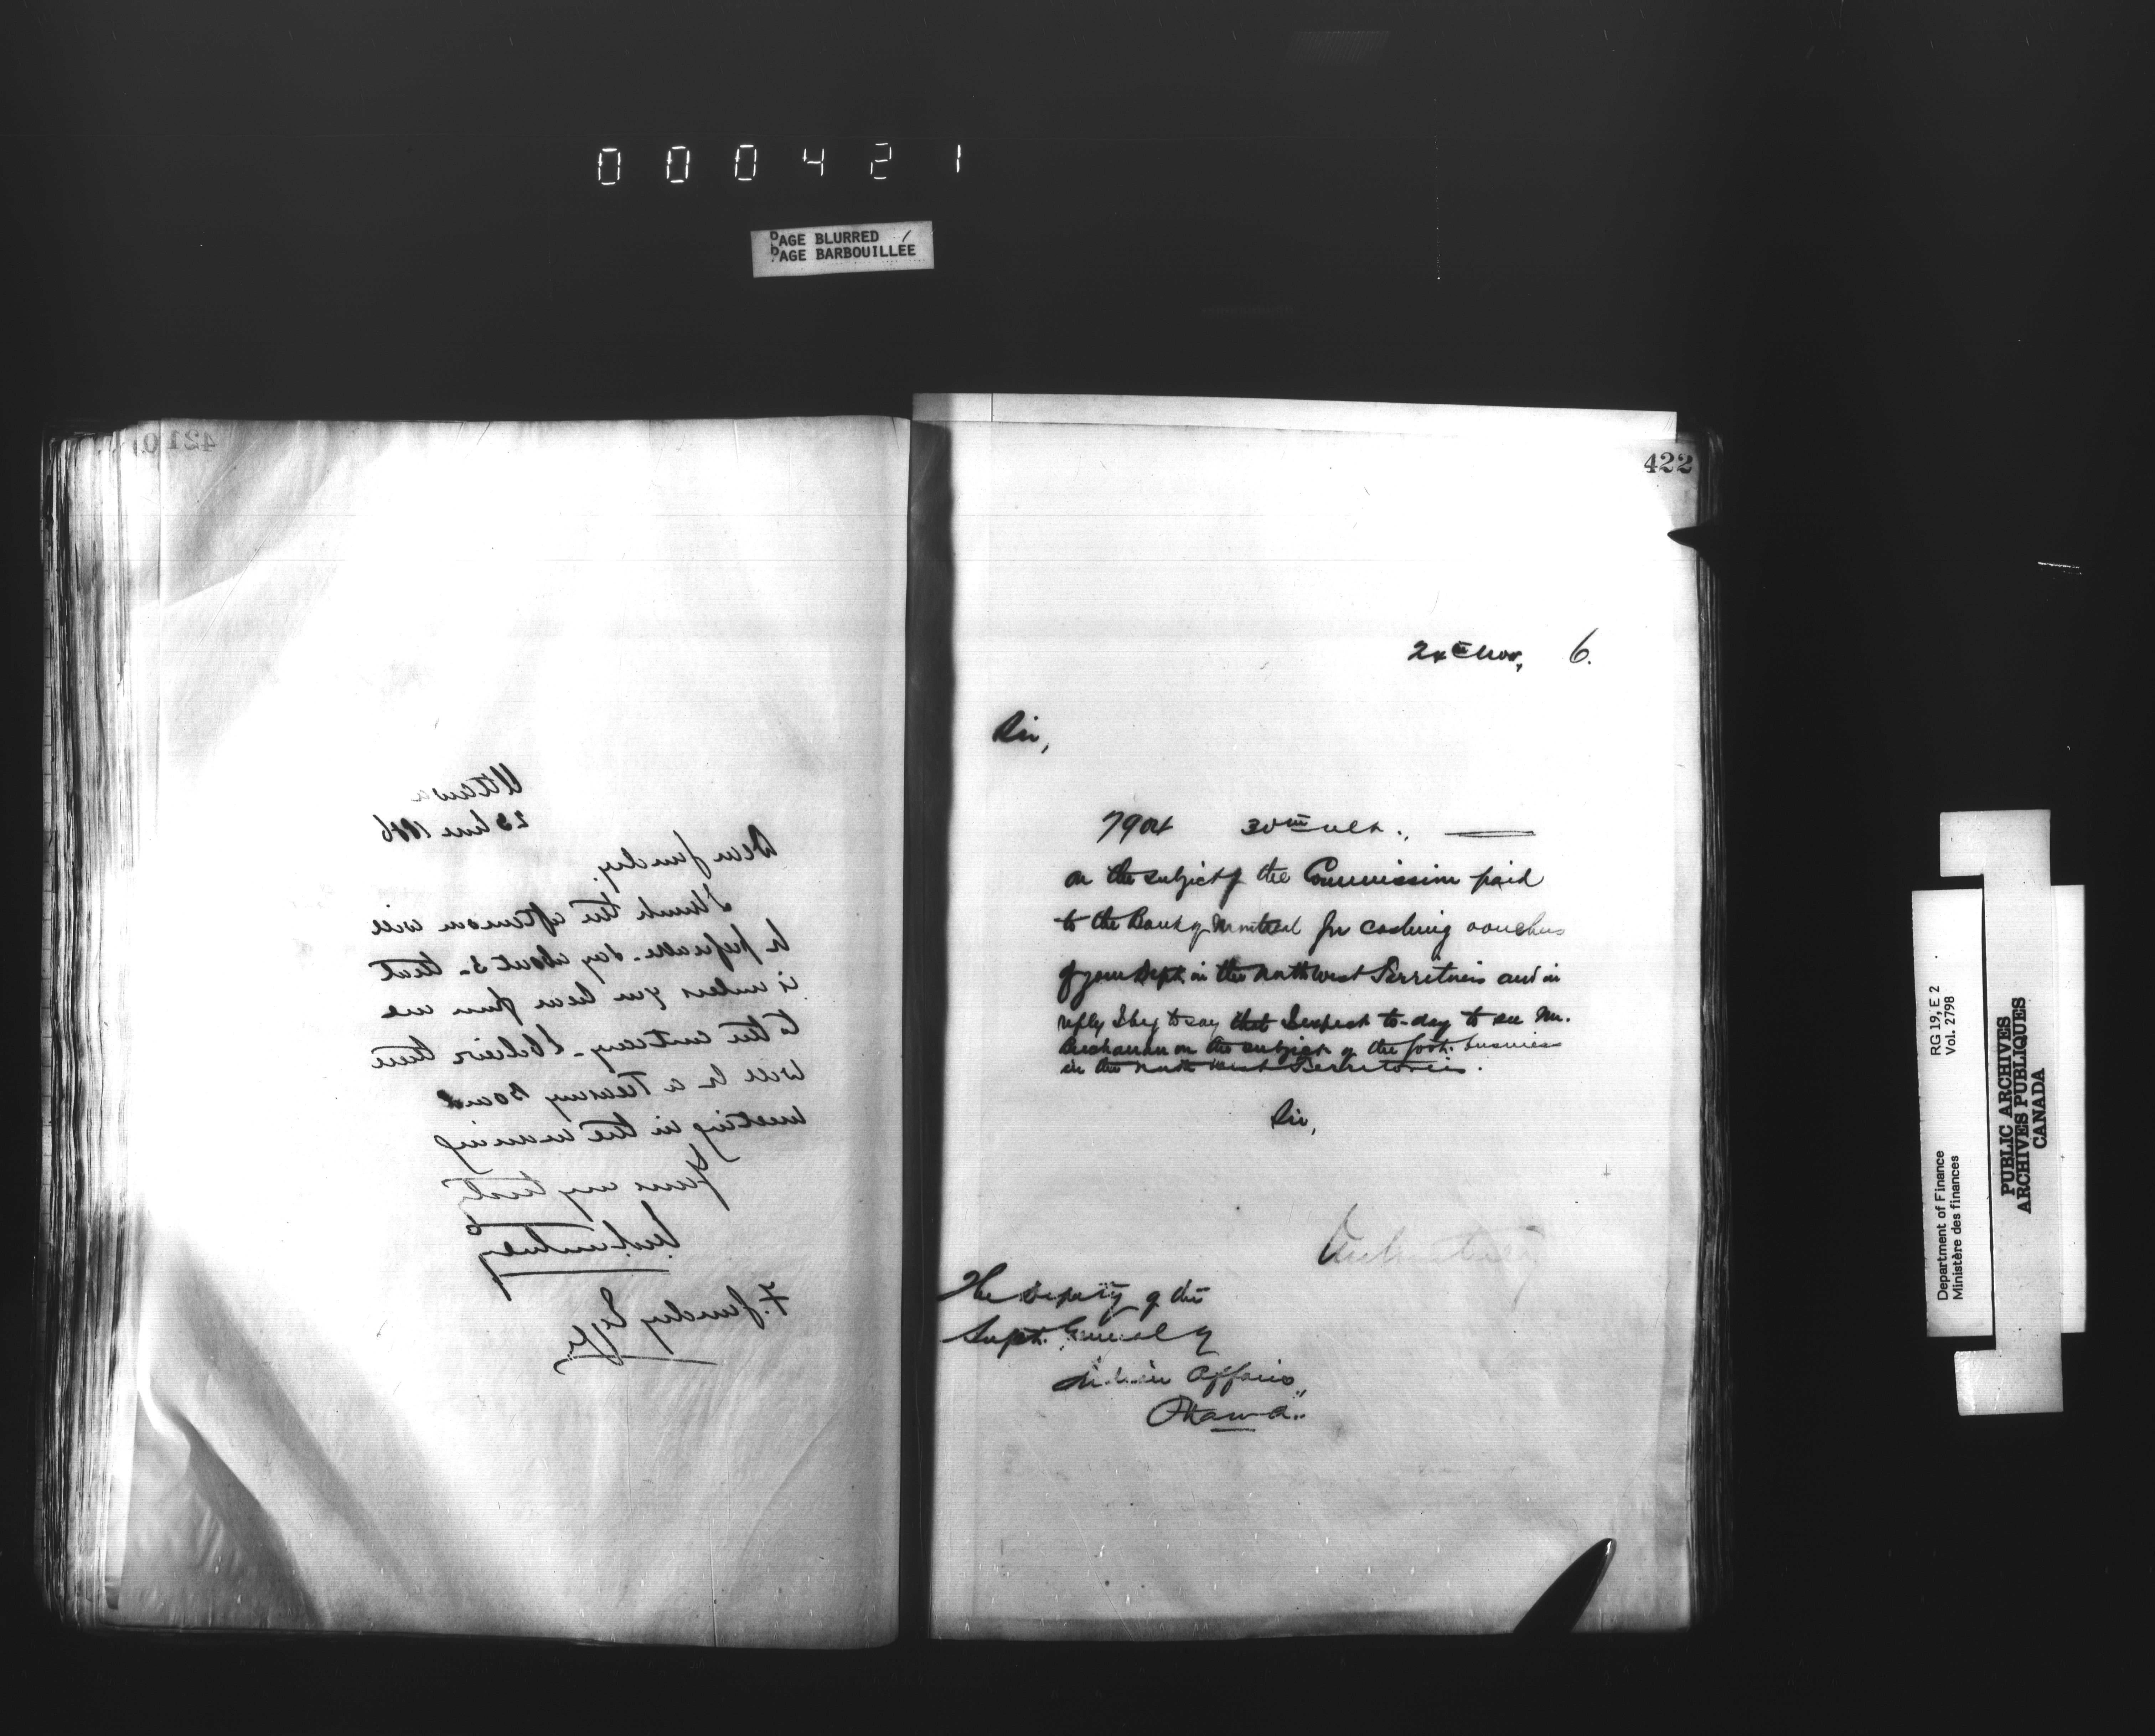 000421
PAGE BLURRED
PAGE BARBOUILLÉE
421
Ottawa
23 1886
Dear Gundry.
I think the afternoon will
be preferable. say about 3. that
is unless you hear from me
to the contrary. I believe there
will be a Treasury Board
meeting in the morning
Yours very truly
F. Gundry Esqre
422
24th Nov, 6.
Sir,
7904 30th ult.,
on the subject of the Commission paid
to the Bank of Montreal for cashing vouchers
of your Dept. in the North West Territories and in
reply I beg to say that I expect to-day to see Mr.
Buchanan on the subject of the Govt. business
in the North West Territories.
Sir,
The Deputy of the
Supt. General of
Indian Affairs,
Ottawa..
Department of Finance
Ministère des finances
RG 19, E 2
Vol. 2798
PUBLIC ARCHIVES
ARCHIVES PUBLIQUES
CANADA